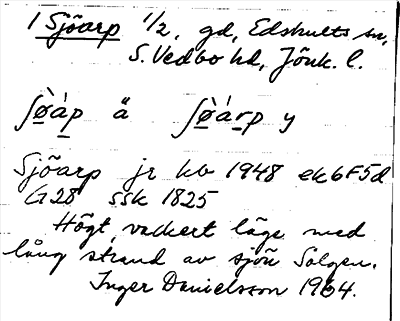 1 Sjöarp 1/2, gd, Edshults sn,
S. Vedbo hd, Jönk. l.
ʃø̀áp ä ʃø̀árp y
Sjöarp jr kb 1948 ek 6F5d
G28 ssk 1825
Högt, vackert läge med
lång strand av sjön Solgen.
Inger Danielsson 1964.